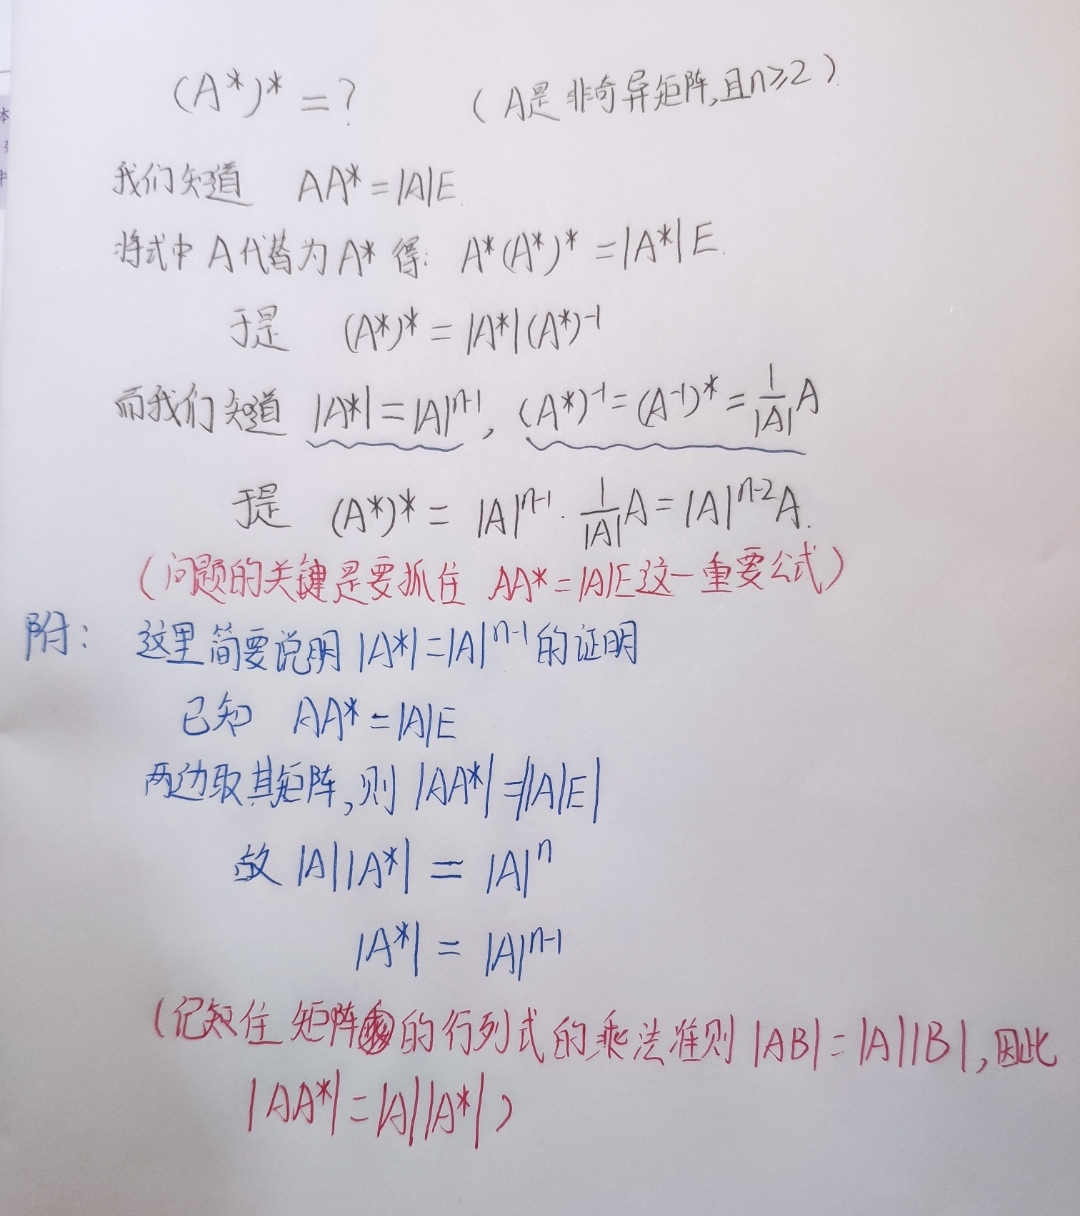 (A*)* = ? (A是非奇异矩阵,且n≥2)
我们知道 AA* = |A|E.
将式中A代替为A* 得: A*(A*)* = |A*|E.
于是 (A*)* = |A*|(A*)⁻¹
而我们知道 |A*| = |A|ⁿ⁻¹, (A*)⁻¹ = (A⁻¹)* = 1/|A| A
于是 (A*)* = |A|ⁿ⁻¹ · 1/|A| A = |A|ⁿ⁻² A.
(问题的关键是要抓住 AA* = |A|E 这一重要公式)
附: 这里简要说明 |A*| = |A|ⁿ⁻¹ 的证明
已知 AA* = |A|E
两边取其矩阵,则 |AA*| = ||A|E|
故 |A||A*| = |A|ⁿ
|A*| = |A|ⁿ⁻¹
(记住 矩阵的行列式的乘法准则 |AB| = |A||B|, 因此
|AA*| = |A||A*|)